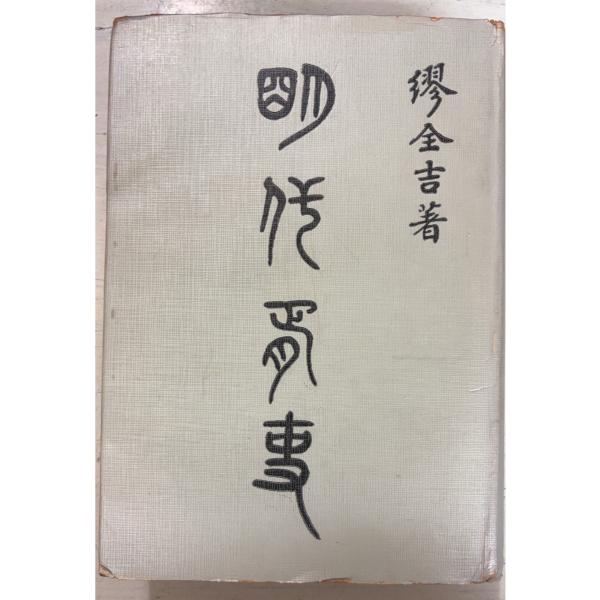 繆全吉著
明代胥吏